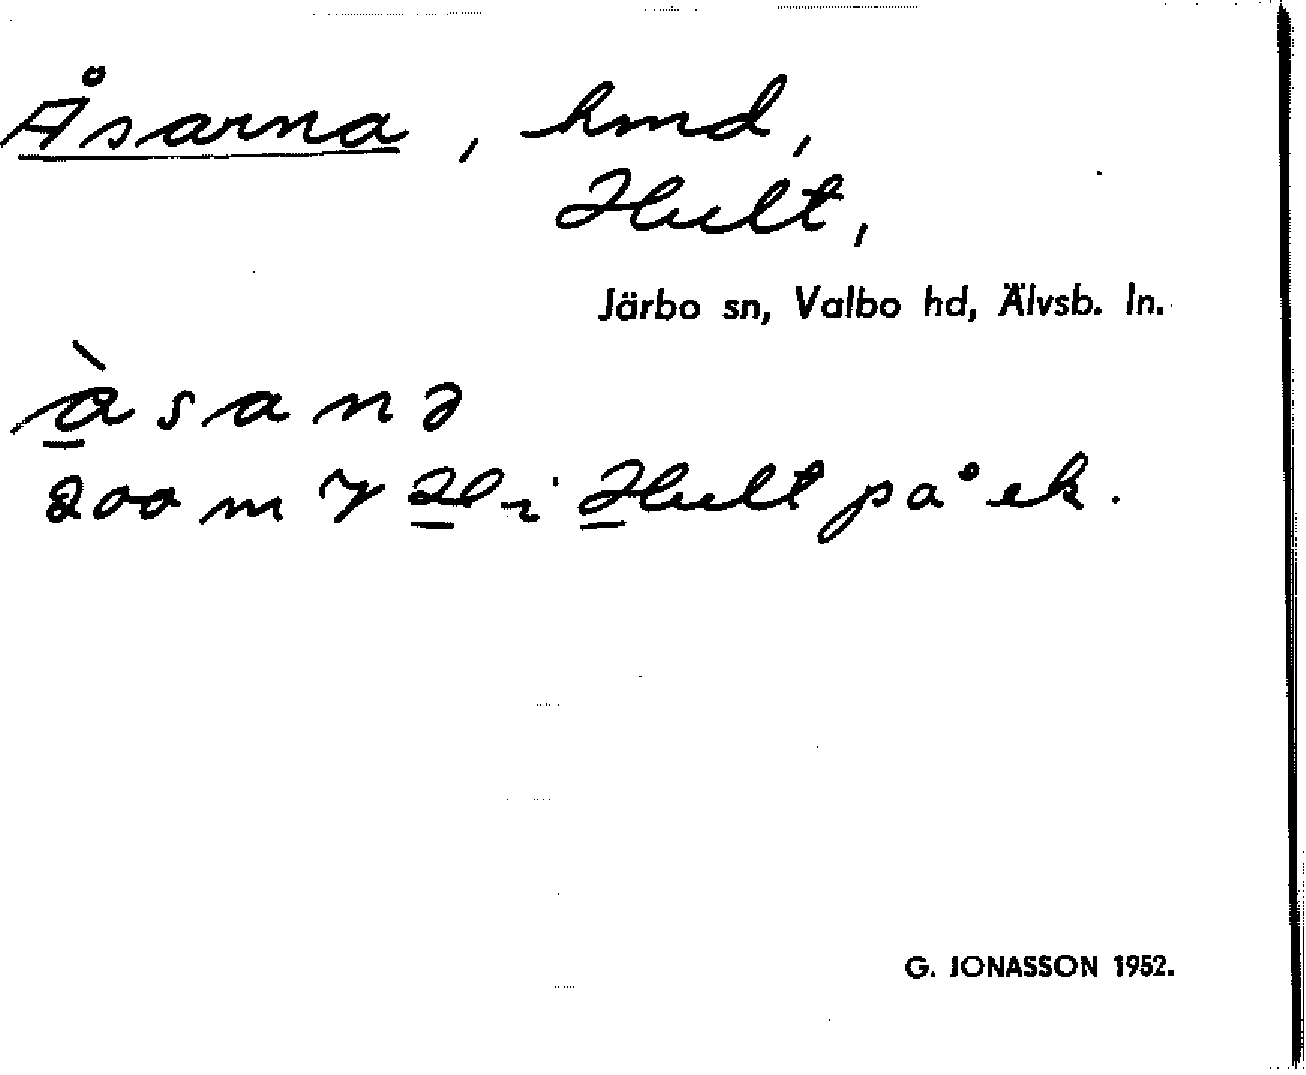 Åsarna, hmd,
Hult,
Järbo sn, Valbo hd, Älvsb. ln.
àsanə
200 m V H i Hult på ek.
G. JONASSON 1952.